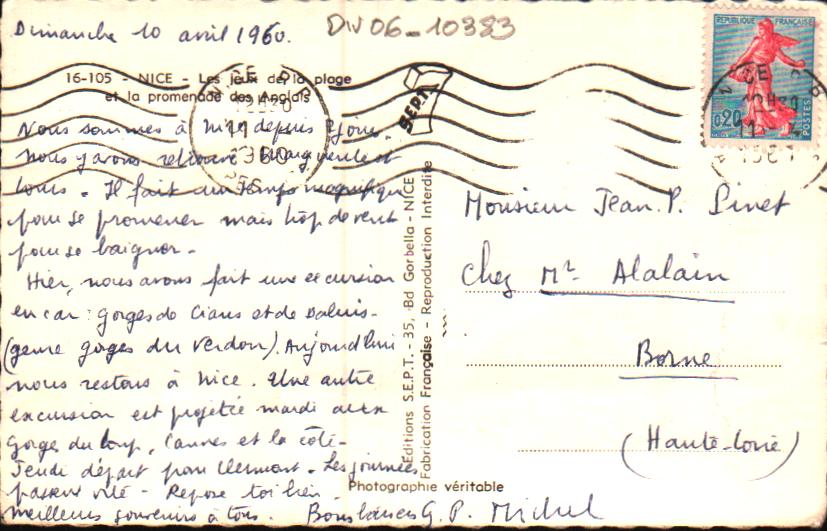 Dimanche 10 avril 1960.
DV06-10383
REPUBLIQUE FRANÇAISE
0,20
POSTES
16-105 - NICE - Les jeux de la plage
et la promenade des Anglais
NICE
1960
SEPT
Nous sommes à Nice depuis jours.
Nous y avons retrouvé Marguerite et
Louis. Il fait un temps magnifique
pour se promener mais trop de vent
pour se baigner.
Hier, nous avons fait une excursion
en car : gorges de Cians et de Daluis.
(genre gorges du Verdon). Aujourd'hui
nous restons à Nice. Une autre
excursion est projetée mardi aux
Gorges du Loup, Cannes et la côte.
Jeudi départ pour Clermont. Les journées
passent vite. Repose toi bien.
Meilleurs souvenirs à tous. G.P. Michel
Editions S.E.P.T. - 35, Bd Gorbella - NICE
Fabrication Française - Reproduction Interdite
Photographie véritable
Monsieur Jean.P. Pinet
chez Mr Alalain
Borne
(Haute-Loire)